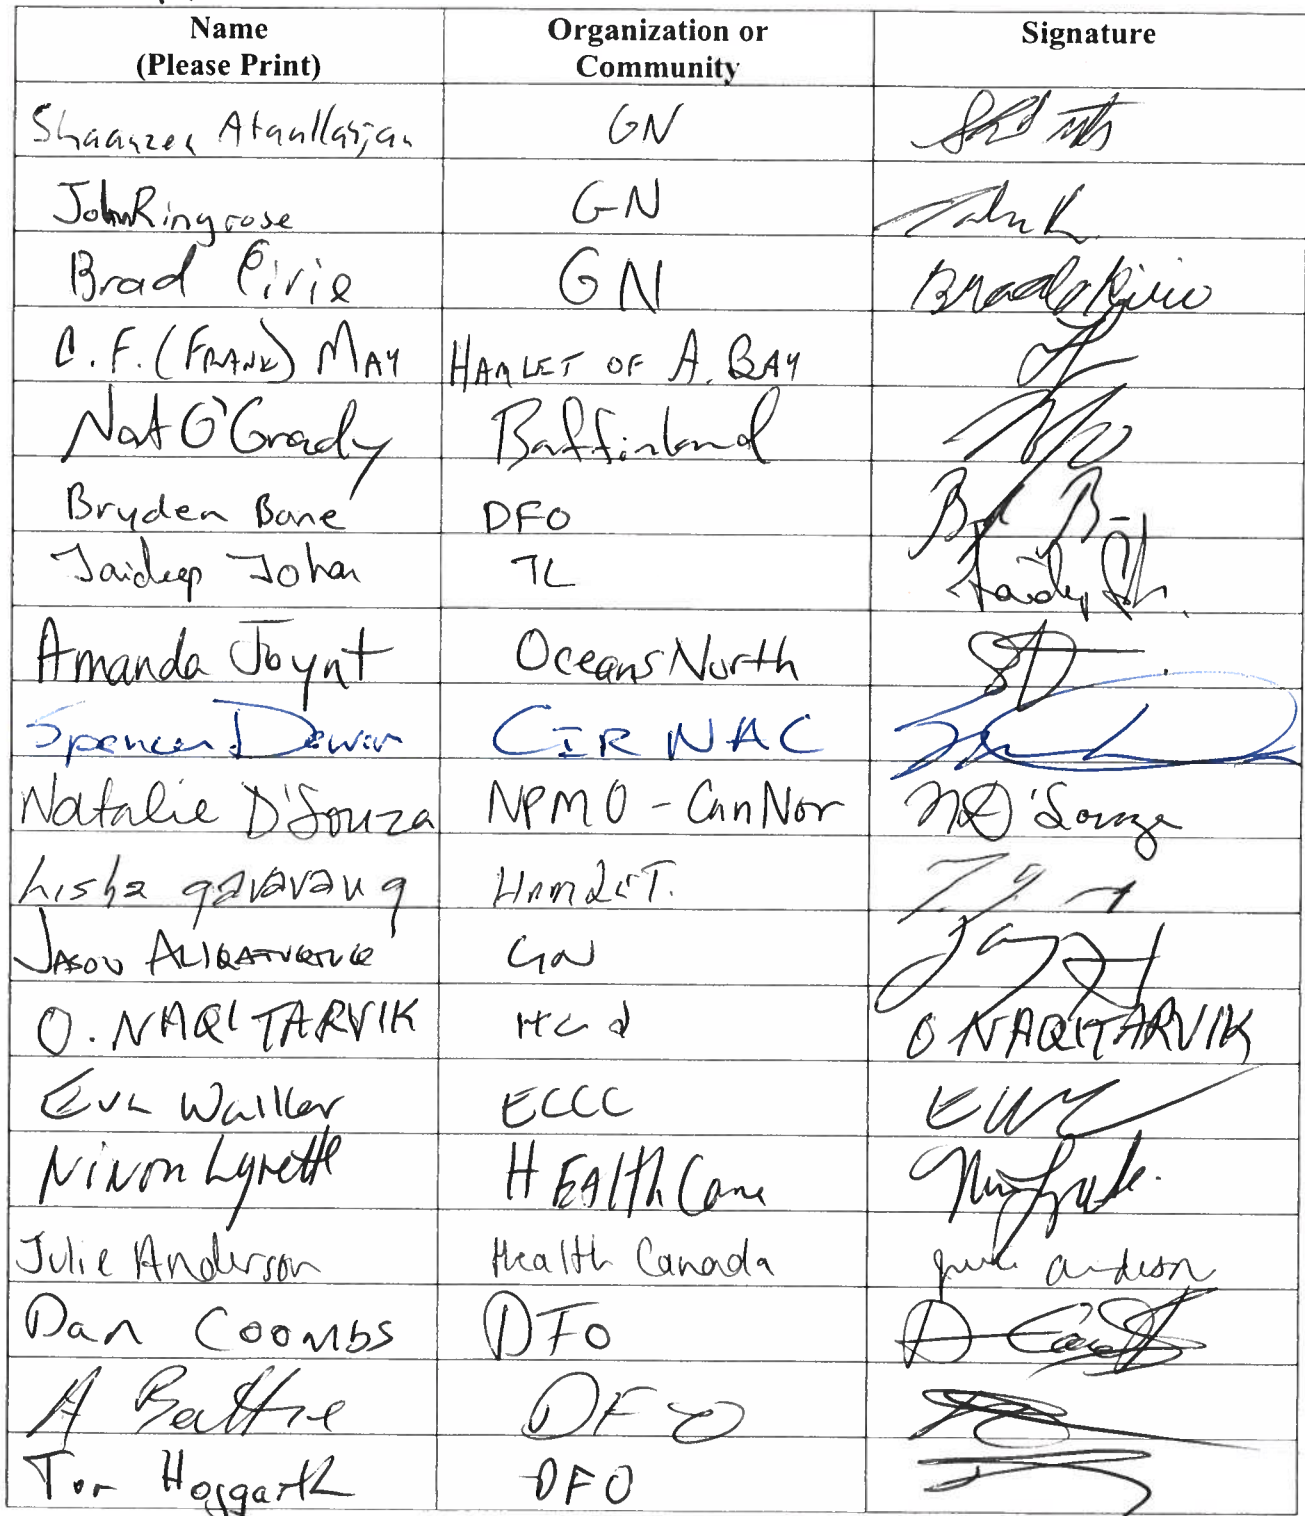 Name Organization or Signature
(Please Print) Community
Shaanzeh Ataullahjan GN
John Ringrose GN
Brad Pirie GN Brad Pirie
C.F. (FRANK) MAY HAMLET OF A. BAY
Nat O'Grady Baffinland
Bryden Bone DFO
Jaideep Johar TC
Amanda Joynt Oceans North
Spencer Dewar CIRNAC
Natalie D'Souza NPMO - CanNor ND'Souza
Lisha qavavauq HAmLeT.
JASON ALIQATUQTUQ GN
O. NAQITARVIK O NAQITARVIK
Eva Walker ECCC
Ninon Lyrette HEAlth Cana
Julie Anderson Health Canada Julie Anderson
Dan Coombs DFO
A Beattie DFO
Tom Hoggarth DFO